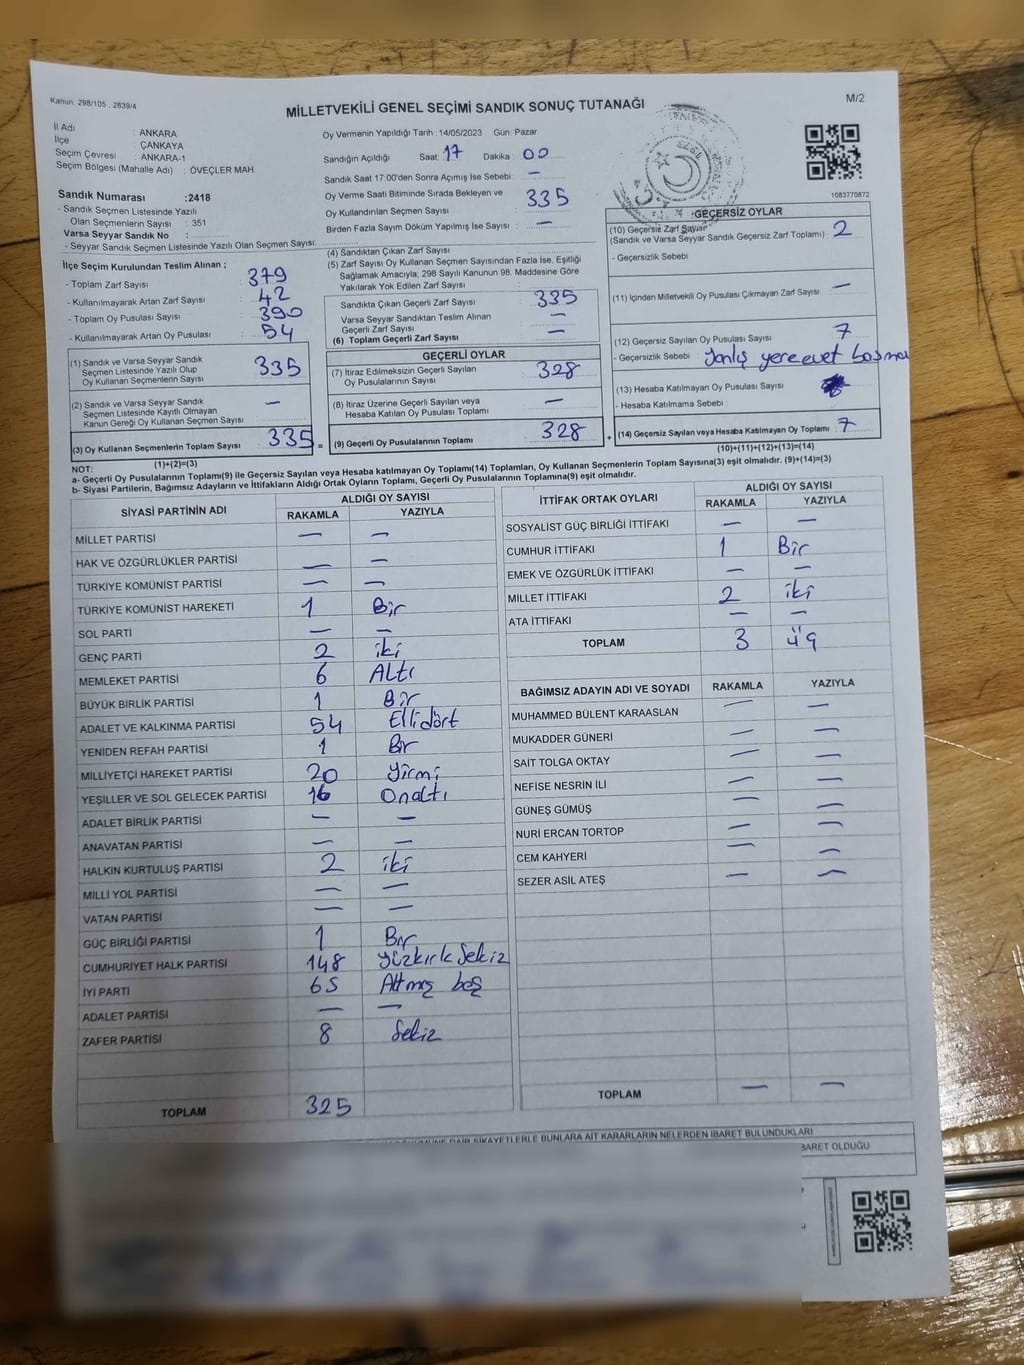 Kanun: 298/105 , 2839/4
MİLLETVEKİLİ GENEL SEÇİMİ SANDIK SONUÇ TUTANAĞI
M/2
İl Adı : ANKARA
İlçe : ÇANKAYA
Seçim Çevresi : ANKARA-1
Seçim Bölgesi (Mahalle Adı) : ÖVEÇLER MAH
Sandık Numarası :2418
- Sandık Seçmen Listesinde Yazılı
Olan Seçmenlerin Sayısı : 351
Varsa Seyyar Sandık No :
- Seyyar Sandık Seçmen Listesinde Yazılı Olan Seçmen Sayısı:
Oy Vermenin Yapıldığı Tarih : 14/05/2023 Gün: Pazar
Sandığın Açıldığı Saat: 17 Dakika : 00
Sandık Saat 17:00'den Sonra Açımış İse Sebebi : —
Oy Verme Saati Bitiminde Sırada Bekleyen ve
Oy Kullandırılan Seçmen Sayısı : 335
Birden Fazla Sayım Döküm Yapılmış İse Sayısı : —
1083770872
İlçe Seçim Kurulundan Teslim Alınan ;
- Toplam Zarf Sayısı : 379
- Kullanılmayarak Artan Zarf Sayısı : 42
- Toplam Oy Pusulası Sayısı : 390
- Kullanılmayarak Artan Oy Pusulası : 54
(1) Sandık ve Varsa Seyyar Sandık
Seçmen Listesinde Yazılı Olup
Oy Kullanan Seçmenlerin Sayısı : 335
(2) Sandık ve Varsa Seyyar Sandık
Seçmen Listesinde Kayıtlı Olmayan
Kanun Gereği Oy Kullanan Seçmen Sayısı : —
(3) Oy Kullanan Seçmenlerin Toplam Sayısı : 335 =
(1)+(2)=(3)
(4) Sandıktan Çıkan Zarf Sayısı
(5) Zarf Sayısı Oy Kullanan Seçmen Sayısından Fazla İse, Eşitliği
Sağlamak Amacıyla; 298 Sayılı Kanunun 98. Maddesine Göre
Yakılarak Yok Edilen Zarf Sayısı :
Sandıkta Çıkan Geçerli Zarf Sayısı : 335
Varsa Seyyar Sandıktan Teslim Alınan
Geçerli Zarf Sayısı : —
(6) Toplam Geçerli Zarf Sayısı : —
GEÇERLİ OYLAR
(7) İtiraz Edilmeksizin Geçerli Sayılan
Oy Pusulalarının Sayısı : 328
(8) İtiraz Üzerine Geçerli Sayılan veya
Hesaba Katılan Oy Pusulası Toplamı : —
(9) Geçerli Oy Pusulalarının Toplamı : 328 +
GEÇERSİZ OYLAR
(10) Geçersiz Zarf Sayısı
(Sandık ve Varsa Seyyar Sandık Geçersiz Zarf Toplamı) : 2
- Geçersizlik Sebebi :
(11) İçinden Milletvekili Oy Pusulası Çıkmayan Zarf Sayısı : —
(12) Geçersiz Sayılan Oy Pusulası Sayısı : 7
- Geçersizlik Sebebi : Yanlış yere evet basma
(13) Hesaba Katılmayan Oy Pusulası Sayısı :
- Hesaba Katılmama Sebebi :
(14) Geçersiz Sayılan veya Hesaba Katılmayan Oy Toplamı : 7
(10)+(11)+(12)+(13)=(14)
NOT:
a- Geçerli Oy Pusulalarının Toplamı(9) ile Geçersiz Sayılan veya Hesaba katılmayan Oy Toplamı(14) Toplamları, Oy Kullanan Seçmenlerin Toplam Sayısına(3) eşit olmalıdır. (9)+(14)=(3)
b- Siyasi Partilerin, Bağımsız Adayların ve İttifakların Aldığı Ortak Oyların Toplamı, Geçerli Oy Pusulalarının Toplamına(9) eşit olmalıdır.
SİYASİ PARTİNİN ADI ALDIĞI OY SAYISI
RAKAMLA YAZIYLA
MİLLET PARTİSİ — —
HAK VE ÖZGÜRLÜKLER PARTİSİ — —
TÜRKİYE KOMÜNİST PARTİSİ — —
TÜRKİYE KOMÜNİST HAREKETİ 1 Bir
SOL PARTİ — —
GENÇ PARTİ 2 iki
MEMLEKET PARTİSİ 6 Altı
BÜYÜK BİRLİK PARTİSİ 1 Bir
ADALET VE KALKINMA PARTİSİ 54 Ellidört
YENİDEN REFAH PARTİSİ 1 Bir
MİLLİYETÇİ HAREKET PARTİSİ 20 Yirmi
YEŞİLLER VE SOL GELECEK PARTİSİ 16 Onaltı
ADALET BİRLİK PARTİSİ — —
ANAVATAN PARTİSİ — —
HALKIN KURTULUŞ PARTİSİ 2 iki
MİLLİ YOL PARTİSİ — —
VATAN PARTİSİ — —
GÜÇ BİRLİĞİ PARTİSİ 1 Bır
CUMHURİYET HALK PARTİSİ 148 Yüzkırk Sekiz
İYİ PARTİ 65 Altmış beş
ADALET PARTİSİ — —
ZAFER PARTİSİ 8 Sekiz
TOPLAM 325
İTTİFAK ORTAK OYLARI ALDIĞI OY SAYISI
RAKAMLA YAZIYLA
SOSYALİST GÜÇ BİRLİĞİ İTTİFAKI — —
CUMHUR İTTİFAKI 1 Bir
EMEK VE ÖZGÜRLÜK İTTİFAKI — —
MİLLET İTTİFAKI 2 iki
ATA İTTİFAKI — —
TOPLAM 3 üç
BAĞIMSIZ ADAYIN ADI VE SOYADI RAKAMLA YAZIYLA
MUHAMMED BÜLENT KARAASLAN — —
MUKADDER GÜNERİ — —
SAİT TOLGA OKTAY — —
NEFİSE NESRİN İLİ — —
GÜNEŞ GÜMÜŞ — —
NURİ ERCAN TORTOP — —
CEM KAHYERİ — —
SEZER ASİL ATEŞ — —
TOPLAM — —
DAİR ŞİKAYETLERLE BUNLARA AİT KARARLARIN NELERDEN İBARET BULUNDUKLARI
BARET OLDUĞU